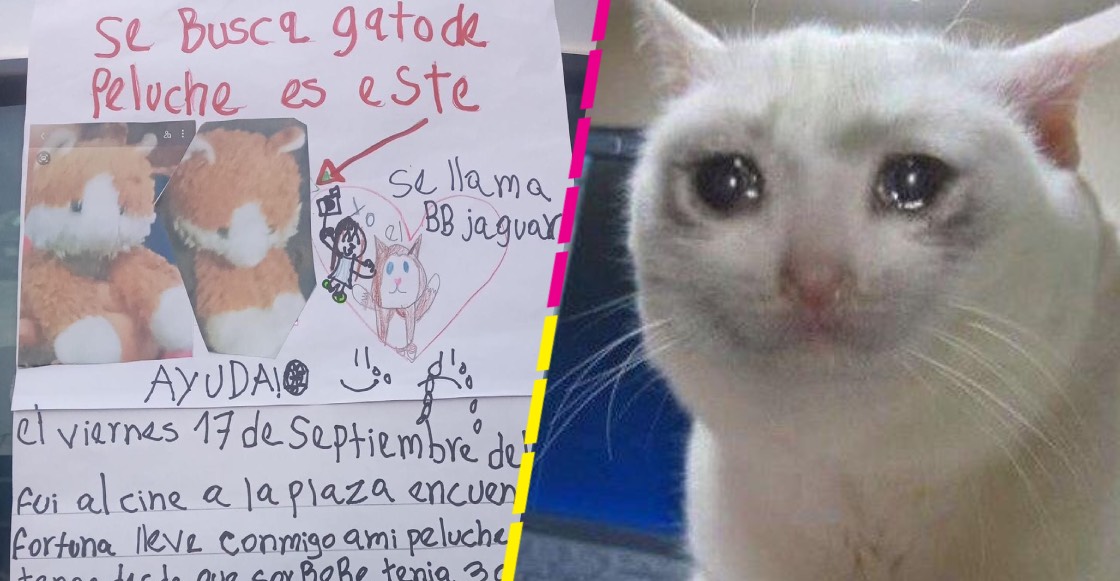 Se Busca gato de
Peluche es este
Se llama
BB jaguar
yo el
AYUDA!
el viernes 17 de Septiembre del
fui al cine a la plaza encuen
fortuna lleve conmigo a mi peluche
desde que soy BeBe tenia 3